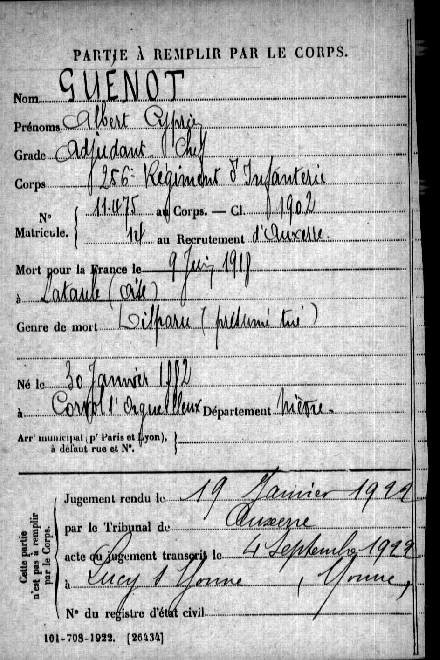 PARTIE À REMPLIR PAR LE CORPS.
Nom GUENOT
Prénoms Albert Cyprien
Grade Adjudant Chef
Corps 256e Régiment d'Infanterie
N° Matricule. { 11.475 au Corps. — Cl. 1902
au Recrutement d'Auxerre.
Mort pour la France le 9 Juin 1918
à Lataule (Oise)
Genre de mort Disparu (présumé tué)
Né le 30 Janvier 1882
à Corvol l'Orgueilleux Département Nièvre.
Arr' municipal (p' Paris et Lyon), à défaut rue et N°.
Cette partie n'est pas à remplir par le Corps.
Jugement rendu le 19 Janvier 1922
par le Tribunal de Auxerre
acte ou jugement transcrit le 4 Septembre 1922
à Lucy s/ Yonne, Yonne,
N° du registre d'état civil
101-708-1922. [26434]